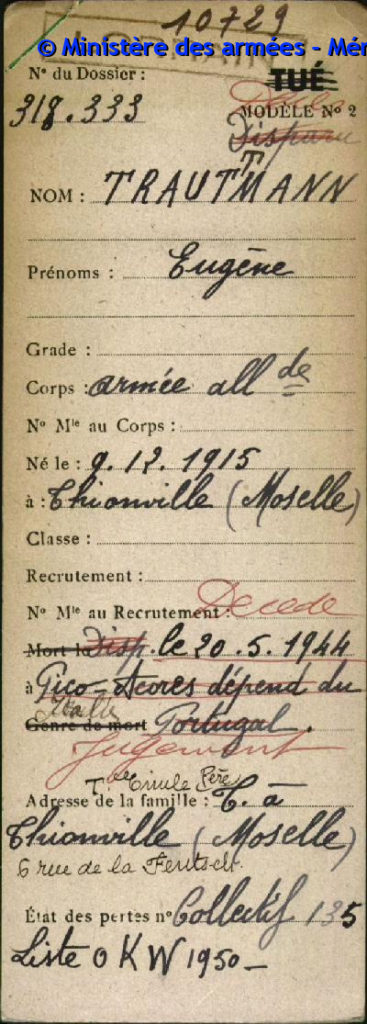 10729
© Ministère des armées - Mém
N° du Dossier :
318.333
TUÉ
Décédé
MODÈLE N° 2
Disparu
NOM : TRAUTTMANN
Prénoms : Eugène
Grade :
Corps : armée all de
N° Mle au Corps :
Né le : 9.12.1915
à : Thionville (Moselle)
Classe :
Recrutement :
N° Mle au Recrutement : Decede
Mort le Disp. le 20.5.1944
à Pico-Acores dépend du
Italie
Genre de mort Portugal.
Jugement
T. Emile Père
Adresse de la famille : T. à
Thionville (Moselle)
6 rue de la Fentsch
État des pertes n° Collectif 135
Liste OKW 1950_